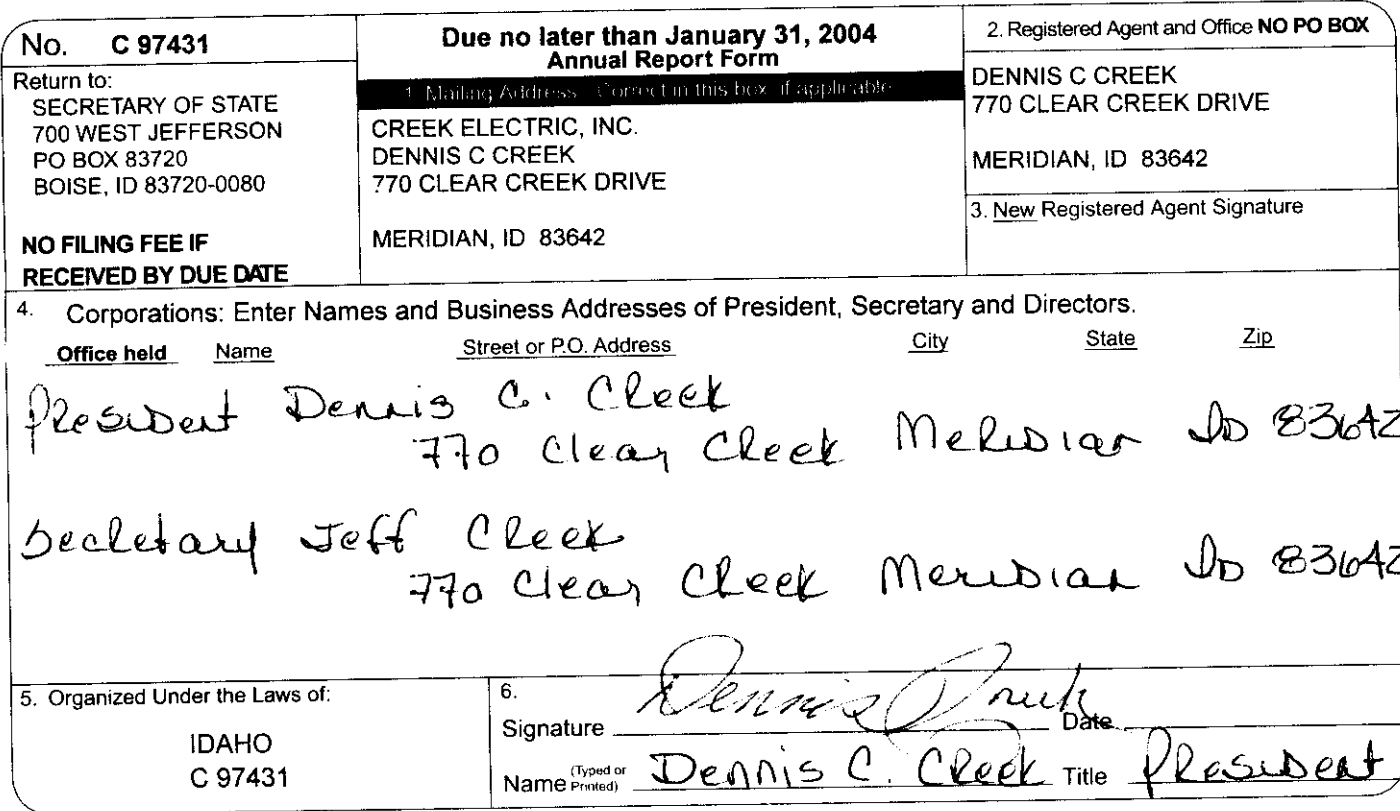 No. C 97431
Return to:
SECRETARY OF STATE
700 WEST JEFFERSON
PO BOX 83720
BOISE, ID 83720-0080
NO FILING FEE IF
RECEIVED BY DUE DATE
Due no later than January 31, 2004
Annual Report Form
1. Mailing Address: Correct in this box if applicable
CREEK ELECTRIC, INC.
DENNIS C CREEK
770 CLEAR CREEK DRIVE
MERIDIAN, ID 83642
2. Registered Agent and Office NO PO BOX
DENNIS C CREEK
770 CLEAR CREEK DRIVE
MERIDIAN, ID 83642
3. New Registered Agent Signature
4. Corporations: Enter Names and Business Addresses of President, Secretary and Directors.
Office held Name Street or P.O. Address City State Zip
President Dennis C. Creek
770 Clear Creek Meridian ID 83642
Secretary Jeff Creek
770 Clear Creek Meridian ID 83642
5. Organized Under the Laws of:
IDAHO
C 97431
6.
Signature Dennis Creek Date
Name (Typed or Printed) Dennis C. Creek Title President